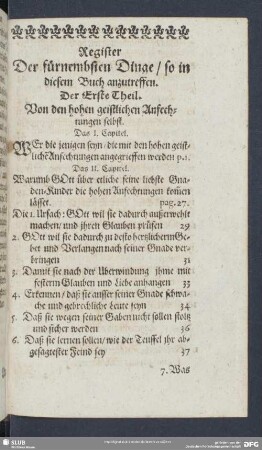 Register
Der fürnembsten Dinge / so in
diesem Buch anzutreffen.
Der Erste Theil.
Von den hohen geistlichen Anfech-
tungen selbst.
Das I. Capitel.
WEr die jenigen seyn / die mit den hohen geist-
lichē Anfechtungen angegrieffen werden p.1.
Das II. Capitel.
Warumb GOtt über etliche seine liebste Gna-
den-Kinder die hohen Anfechtungen kom̃en
lässet. pag. 27.
Die 1. Ursach: GOtt wil sie dadurch außerwehlt
machen / und ihren Glauben prüfen 29
2. GOtt wil sie dadurch zu desto hertzlicherm Ge-
bet und Verlangen nach seiner Gnade ver-
bringen 31
3. Damit sie nach der Uberwindung ihme mit
festerm Glauben und Liebe anhangen 33
4. Erkennen / daß sie ausser seiner Gnade schwa-
che und gebrechliche Leute seyn 34
5. Daß sie wegen seiner Gaben nicht sollen stoltz
und sicher werden 36
6. Daß sie lernen sollen / wie der Teuffel ihr ab-
gesagtester Feind sey 37
7. Was
SLUB
DFG